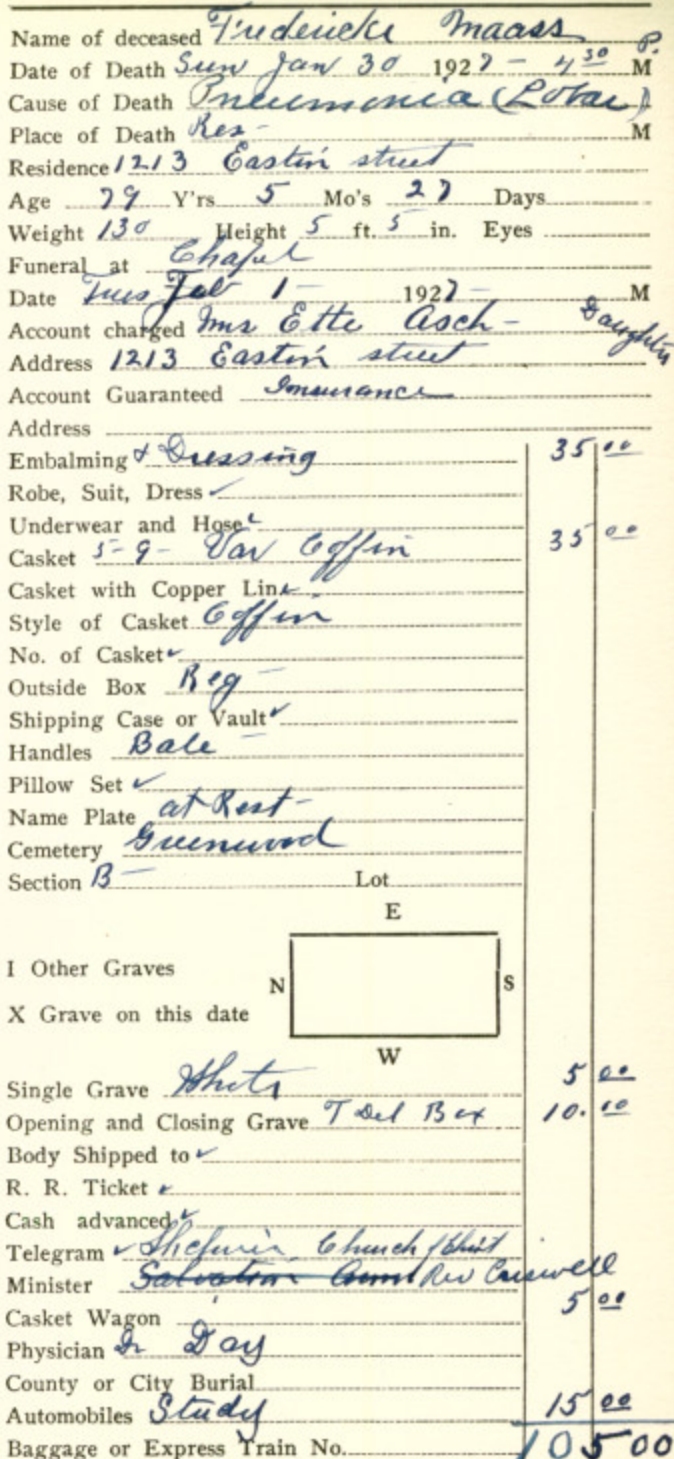 Name of deceased Fredericke Maass
Date of Death Sun Jan 30 1927 - 4 30 P. M
Cause of Death Pneumonia (Lobar)
Place of Death Res - M
Residence 1213 Eastin street
Age 79 Y'rs 5 Mo's 27 Days
Weight 130 Height 5 ft. 5 in. Eyes
Funeral at Chapel
Date Tues Feb 1 - 1927 - M
Account charged Mrs Ette Asch - Daughter
Address 1213 Eastin street
Account Guaranteed Insurance
Address
Embalming & Dressing 35 00
Robe, Suit, Dress ✓
Underwear and Hose ✓
Casket 5-9- Var Coffin 35 00
Casket with Copper Line ✓
Style of Casket Coffin
No. of Casket ✓
Outside Box Reg -
Shipping Case or Vault ✓
Handles Bale -
Pillow Set ✓
Name Plate at Rest -
Cemetery Greenwood
Section B - Lot
E
I Other Graves
N S
X Grave on this date
W
Single Grave White 5 00
Opening and Closing Grave T Del Box 10.00
Body Shipped to ✓
R. R. Ticket ✓
Cash advanced ✓
Telegram ✓ Church of Christ
Minister Salvation Rev Criswell
Casket Wagon 5 00
Physician Dr Day
County or City Burial
Automobiles Study 15 00
Baggage or Express Train No. 105 00